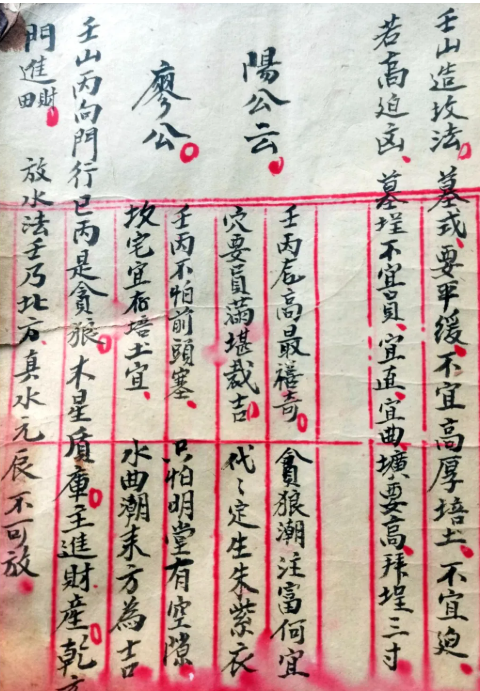 壬山造坟法。墓式、要平緩、不宜高厚培土、不宜迫
若高迫凶、墓埕不宜員、宜直、宜曲、壙要高、拜埕三寸
陽公云。壬丙龙高最禧奇。貪狼潮注富何宜
穴要員滿堪裁吉。代〻定生朱紫衣
廖公。壬丙不怕前頭塞、只怕明堂有空隙
坟宅宜存培土宜、水曲潮来方為吉
壬山丙向門行巳丙是貪狼。木星盾庫主進財產。乾方
門進財田。放水法壬乃北方真水元辰不可放